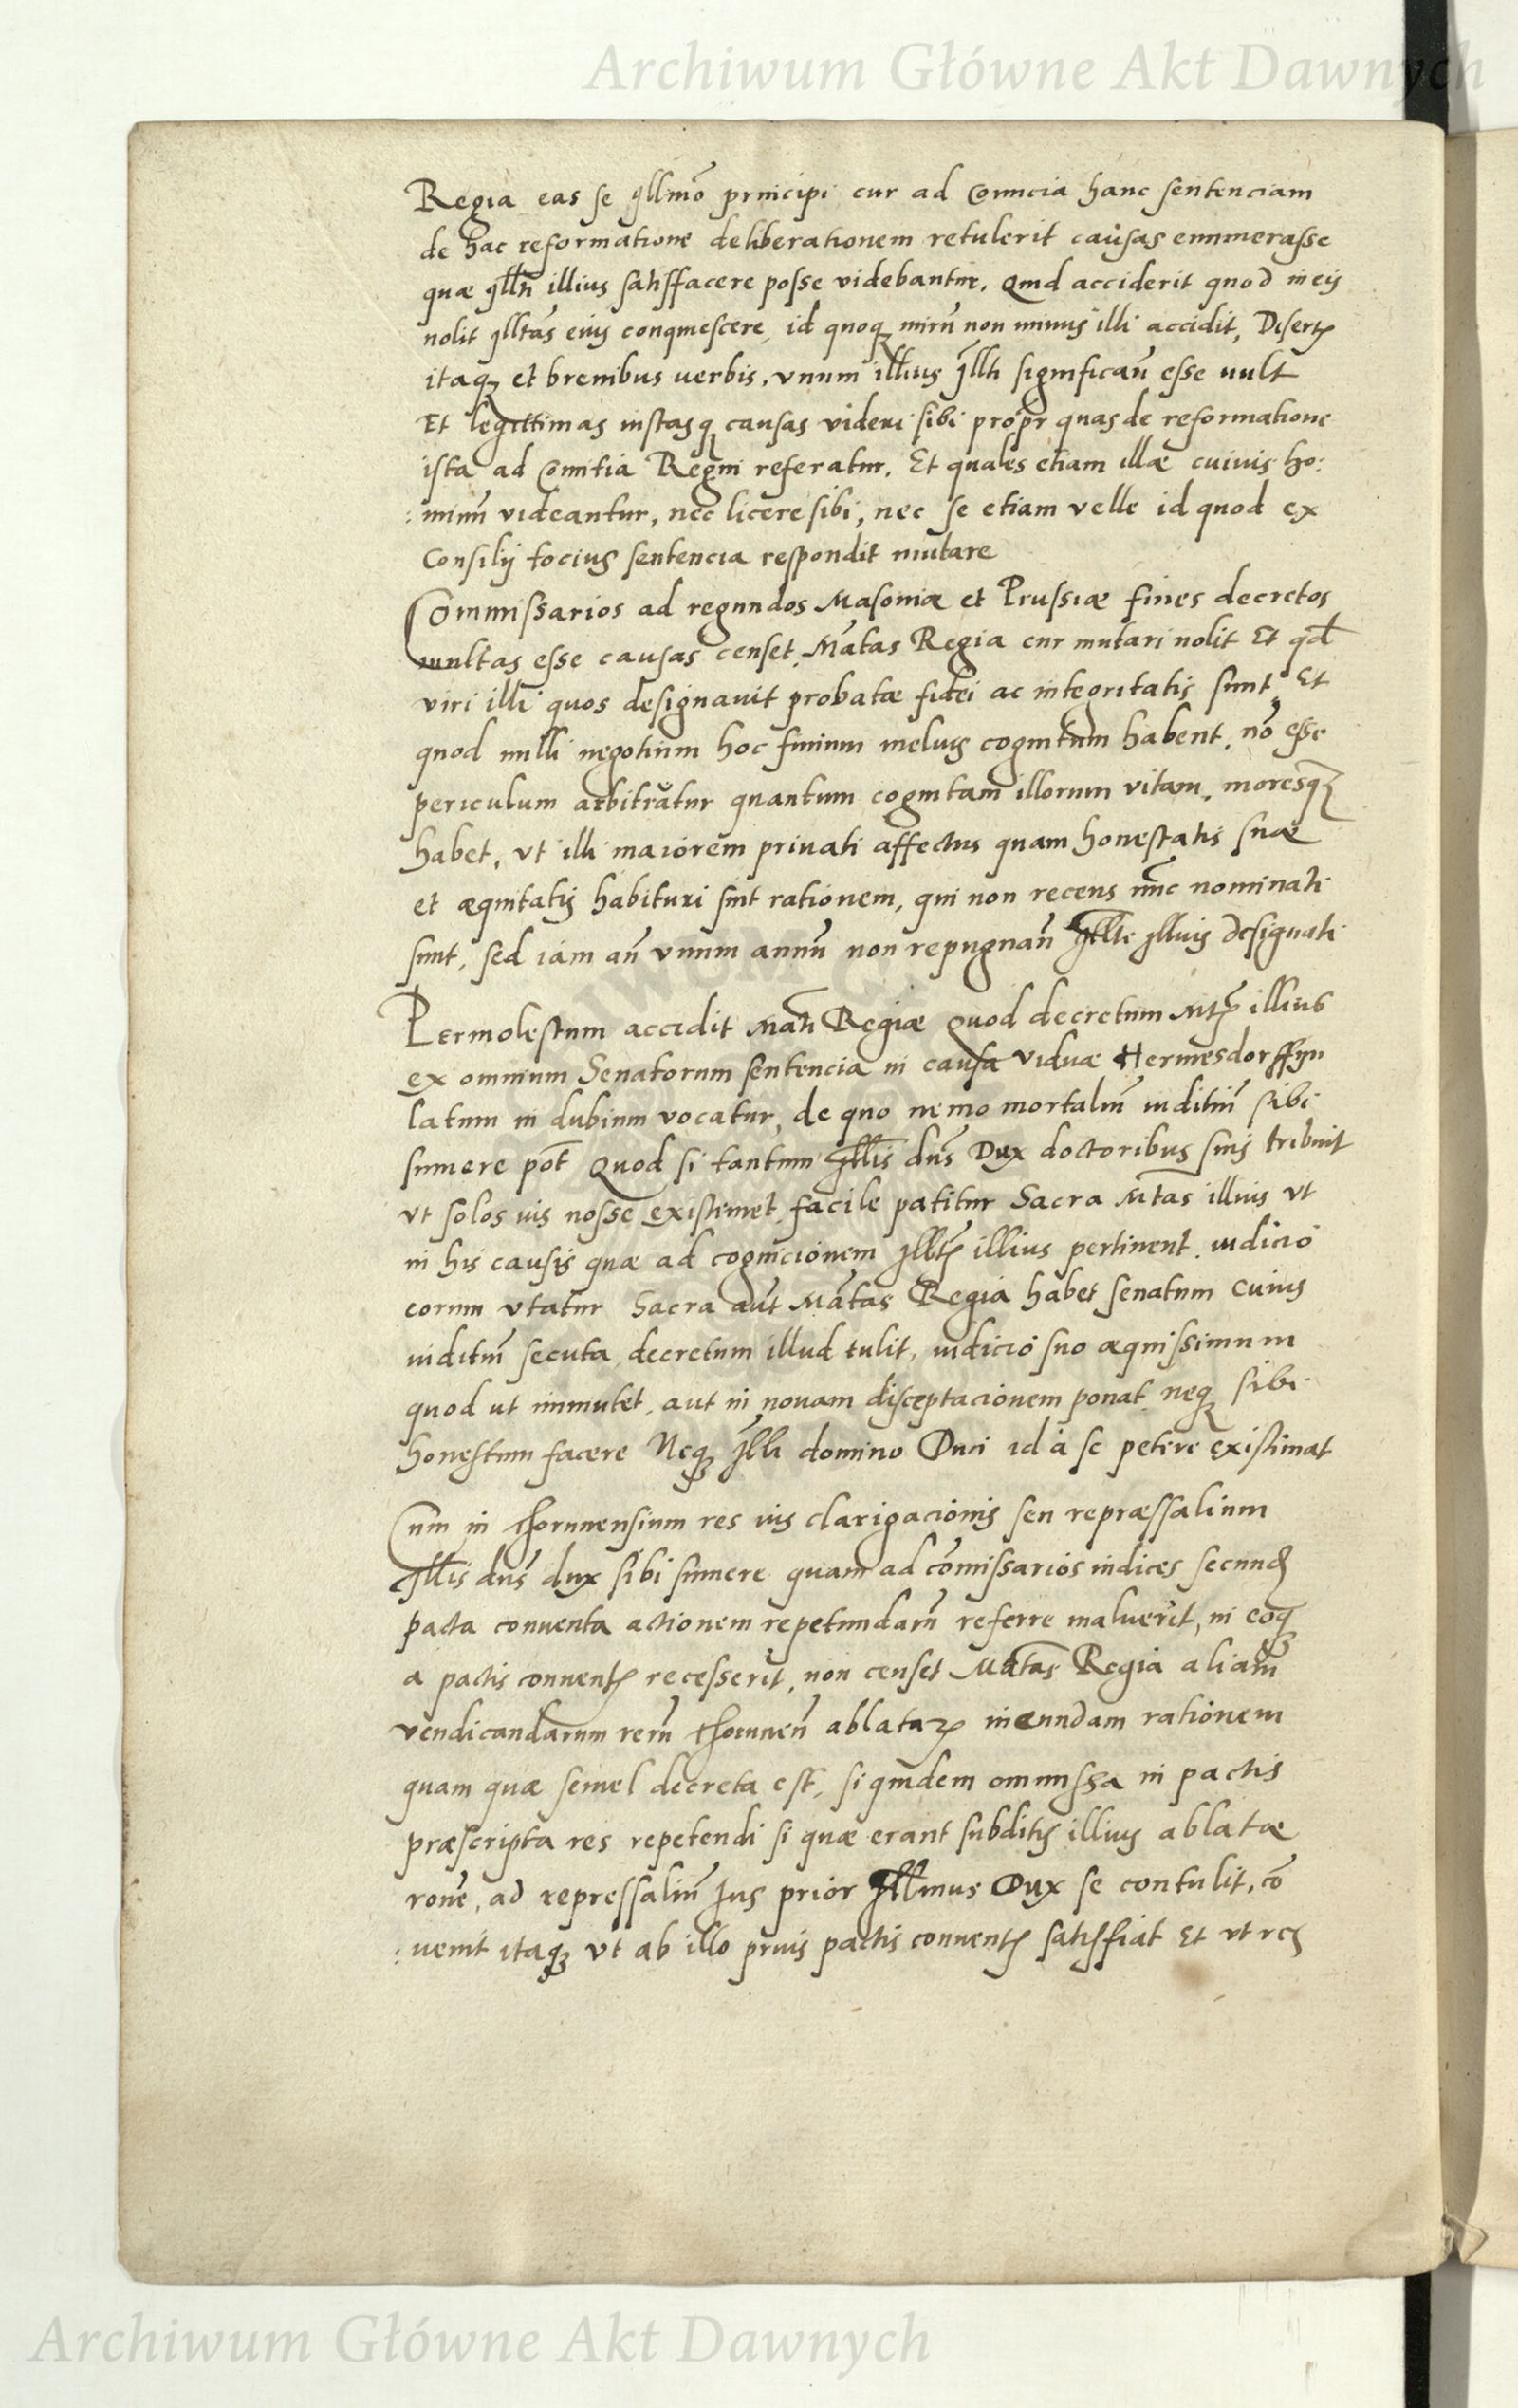 Archiwum Główne Akt Dawnych
Regia eas se Illmo principi cur ad Comicia hanc sentenciam
de hac reformatione deliberationem retulerit causas enumerasse
quæ Illti illius satisffacere posse videbantur. Quid acciderit quod in eis
nolit Illtas eius conquiescere, id quoq mirum non minus illi accidit, Disertis
itaq et brevibus verbis, unum illius Illti significatum esse vult
Et legittimas iustasq causas videri sibi propr quas de reformatione
ista ad Comitia Regni referatur. Et quales etiam illæ cuivis ho:
:minum videantur, nec licere sibi, nec se etiam velle id quod ex
Consilij tocius sentencia respondit mutare
Commissarios ad regundos Masoviæ et Prussiæ fines decretos
multas esse causas censet Mtas Regia cur mutari nolit Et qd
viri illi quos designavit probatæ fidei ac integritatis sunt Et
quod nulli negotium hoc finium melius cognitum habent. no esse
periculum arbitratur quantum cognitam illorum vitam, moresq
habet, ut illi maiorem privati affectus quam honestatis suæ
et æquitatis habituri sint rationem, qui non recens nunc nominati
sunt, sed iam an unum annum non repugnan Illte Illius designati
Permolestum accidit Mati Regiæ quod decretum Mtis illius
ex omnium Senatorum sentencia in causa viduæ Hermesdorffyn
latum in dubium vocatur, de quo nemo mortalium iuditium sibi
sumere pot Quod si tantum Illis dns Dux doctoribus suis tribuit
ut solos ius nosse existimet, facile patitur Sacra Mtas illius ut
in his causis quæ ad cognicionem Illtis illius pertinent, iudicio
eorum utatur Sacra aut Mtas Regia habet senatum cuius
iuditium secuta, decretum illud tulit, iudicio suo æquissimum
quod ut immutet, aut in novam disceptacionem ponat neq sibi
honestum facere Neq Illi domino Duci id à se petere existimat
Cum in Thorunensium res ius clarigacionis seu repræssalium
Illis dns dux sibi sumere quam ad comissarios iudices secund
pacta conventa actionem repetundarum referre maluerit, in eoq
a pactis conventis recesserit, non censet Matas Regia aliam
vendicandarum rerum Thorunen ablatar ineundam rationem
quam quæ semel decreta est, siquidem omnissa in pactis
præscripta res repetendi si quæ erant subditis illius ablatæ
rone, ad repressalium Ius prior Illmus Dux se contulit, co
:venit itaq ut ab illo prius pactis conventis satisffiat Et ut res
Archiwum Główne Akt Dawnych